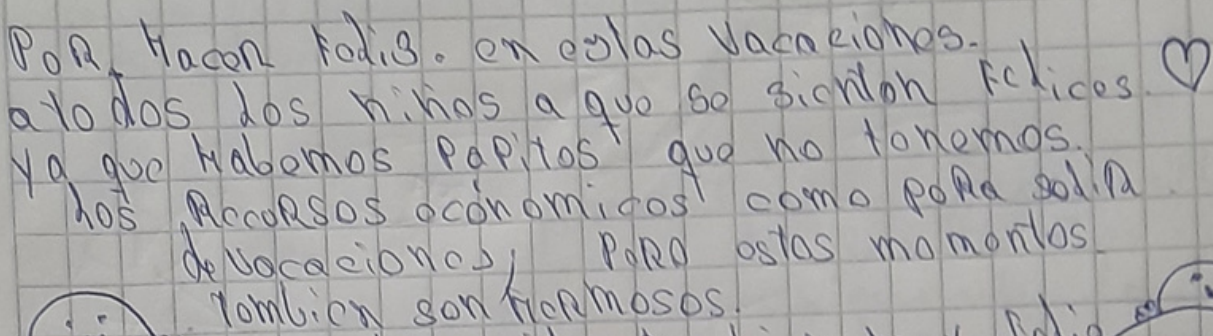 Por Hacen Fedis. en estas Vacaciones.
a todos los niños a que se sienton Felices ♡
Ya que Habemos Papitos que no tenemos.
los Reccorsos oconomicos como para sodir
de vacaciones, Pero estos momentos
tombien son Hermosos